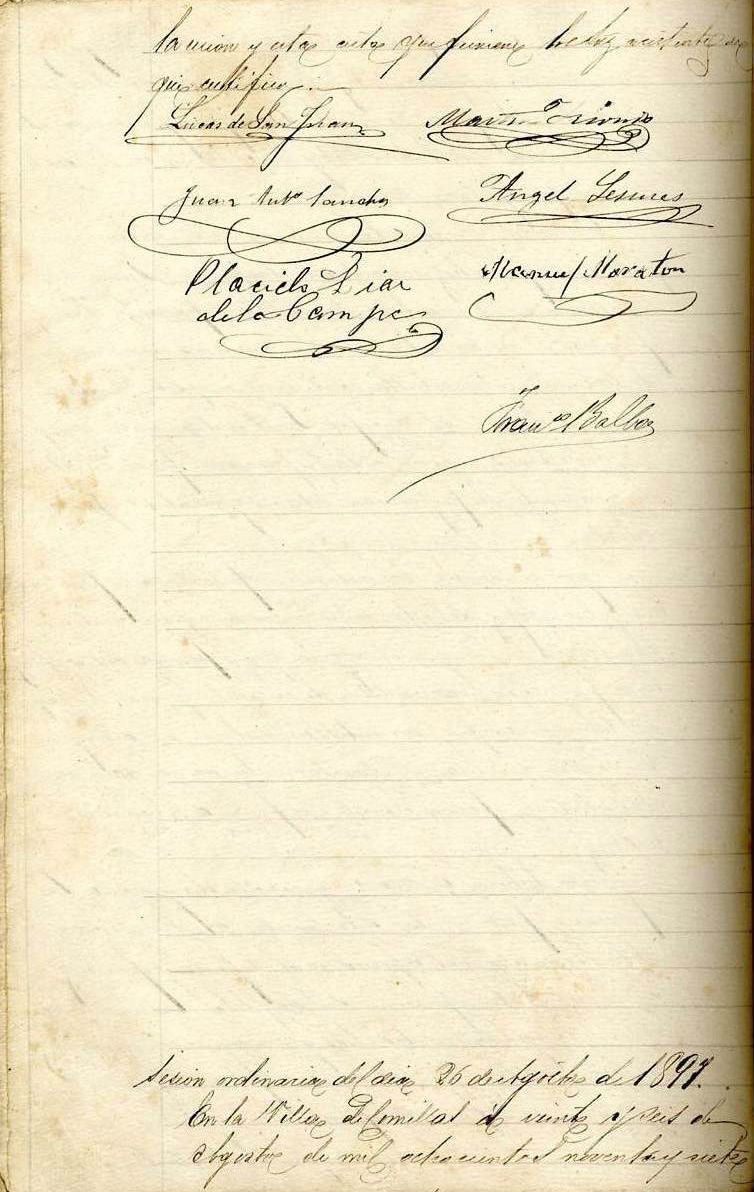 la sesion y esta acta que firman los Sres asistentes de
que certifico.
Lucas de San Juan
Juan Antº Sanchez Angel Lesmes
Placido Diaz Manuel Moraton
de la Campa
Franco Balbas
Sesion ordinaria del dia 26 de Agosto de 1897.
En la Villa de Comillas a veinte y seis de
Agosto de mil ochocientos noventa y siete